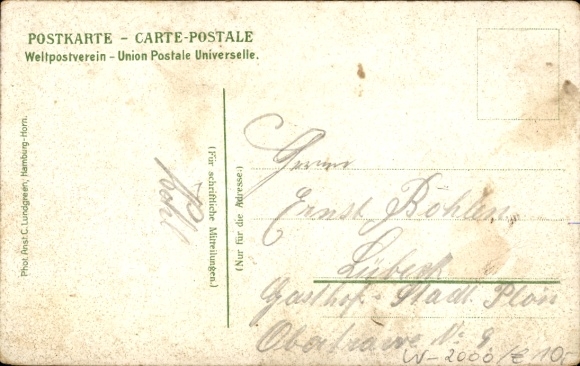 POSTKARTE – CARTE-POSTALE
Weltpostverein – Union Postale Universelle.
Phot. Anst. C. Lundgreen, Hamburg-Horn.
(Für schriftliche Mitteilungen.)
(Nur für die Adresse.)
Herrn
Ernst Bohlen
Lübeck
Gasthof - Stadt Plön
Obertrave No 8
W-2000/€ 10,-